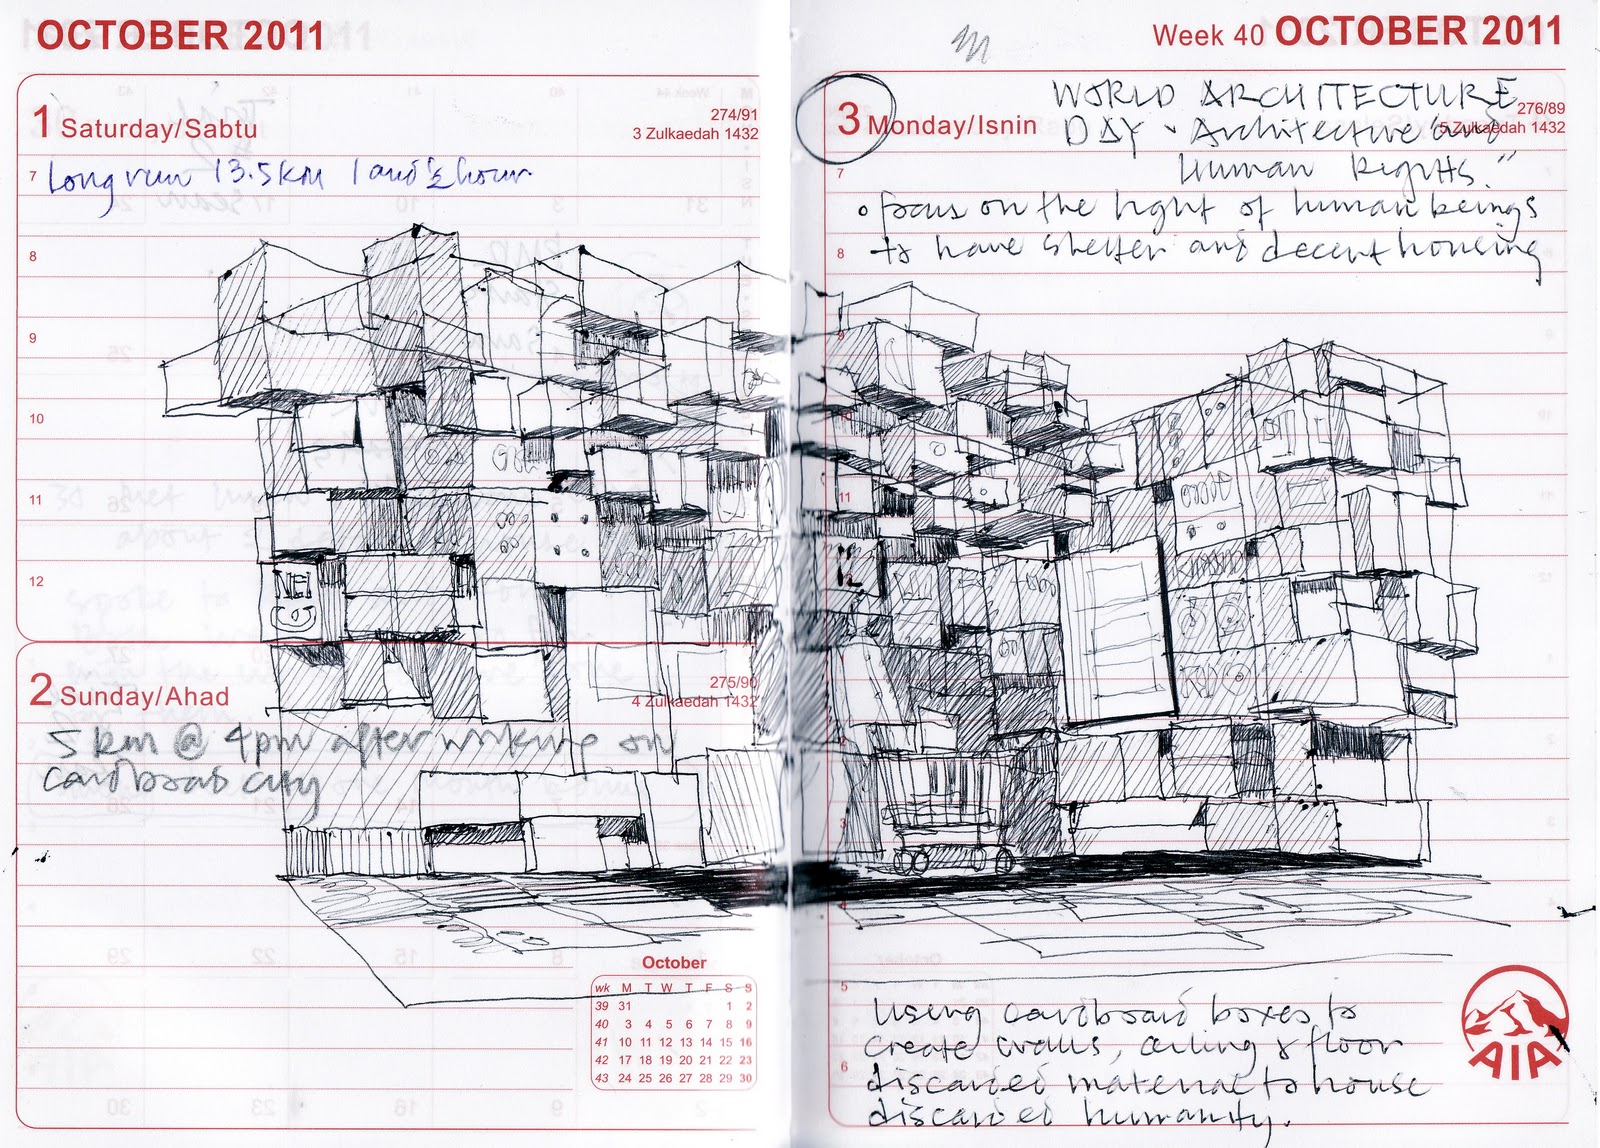 OCTOBER 2011
1 Saturday/Sabtu
274/91
3 Zulkaedah 1432
7 Long run 13.5km 1 and ½ hour.
8
9
10
11
12
NEI
2 Sunday/Ahad
275/90
4 Zulkaedah 1432
5 km @ 4pm after working on
cardboad city
October
wk M T W T F S S
39 31 1 2
40 3 4 5 6 7 8 9
41 10 11 12 13 14 15 16
42 17 18 19 20 21 22 23
43 24 25 26 27 28 29 30
Week 40 OCTOBER 2011
3 Monday/Isnin
276/89
5 Zulkaedah 1432
WORLD ARCHITECTURE
DAY - Architecture and
7 Human Rights."
focus on the right of human beings
8 to have shelter and decent housing
9
10
11
12
2
3
4
5
using cardboard boxes to
create walls, ceiling & floor
6
discarded material to house
discarded humanity.
AIA